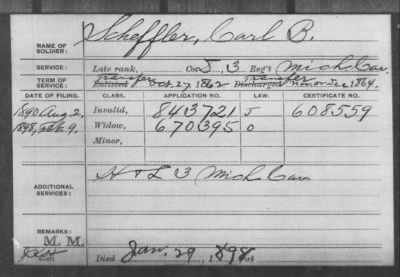 NAME OF SOLDIER: Scheffler, Carl B.
SERVICE: Late rank, Co. J, 3 Reg't Mich Cav.
TERM OF SERVICE: Transfer Enlisted Oct. 27, 1862 Transfer Discharged Nov or Dec 1864.
DATE OF FILING. CLASS. APPLICATION NO. LAW. CERTIFICATE NO.
1890 Aug 2, Invalid, 843721 J 608559
1898, Feb. 9. Widow, 670395 O
Minor,
ADDITIONAL SERVICES: H & L 3 Mich Cav
REMARKS: M. M.
Died Jan. 29, 1898, at